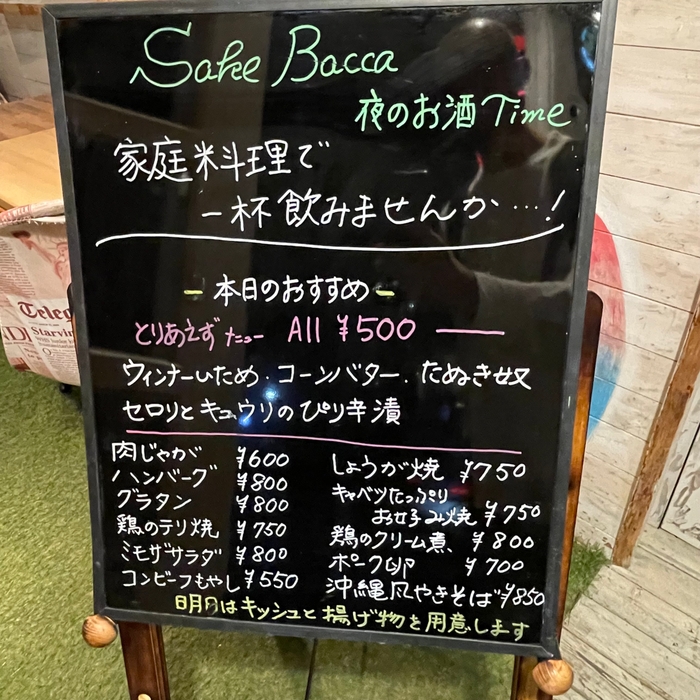 Sake Bacca
夜のお酒Time
家庭料理で
一杯飲みませんか…!
本日のおすすめ
とりあえずメニュー All ¥500
ウィンナーいため．コーンバター．たぬき奴
セロリとキュウリのぴり辛漬
肉じゃが ¥600
ハンバーグ ¥800
グラタン ¥800
鶏のテリ焼 ¥750
ミモザサラダ ¥800
コンビーフもやし ¥550
しょうが焼 ¥750
キャベツたっぷり
お好み焼 ¥750
鶏のクリーム煮 ¥800
ポーク卵 ¥700
沖縄風やきそば ¥850
明日はキッシュと揚げ物を用意します
Teleg
Starvin